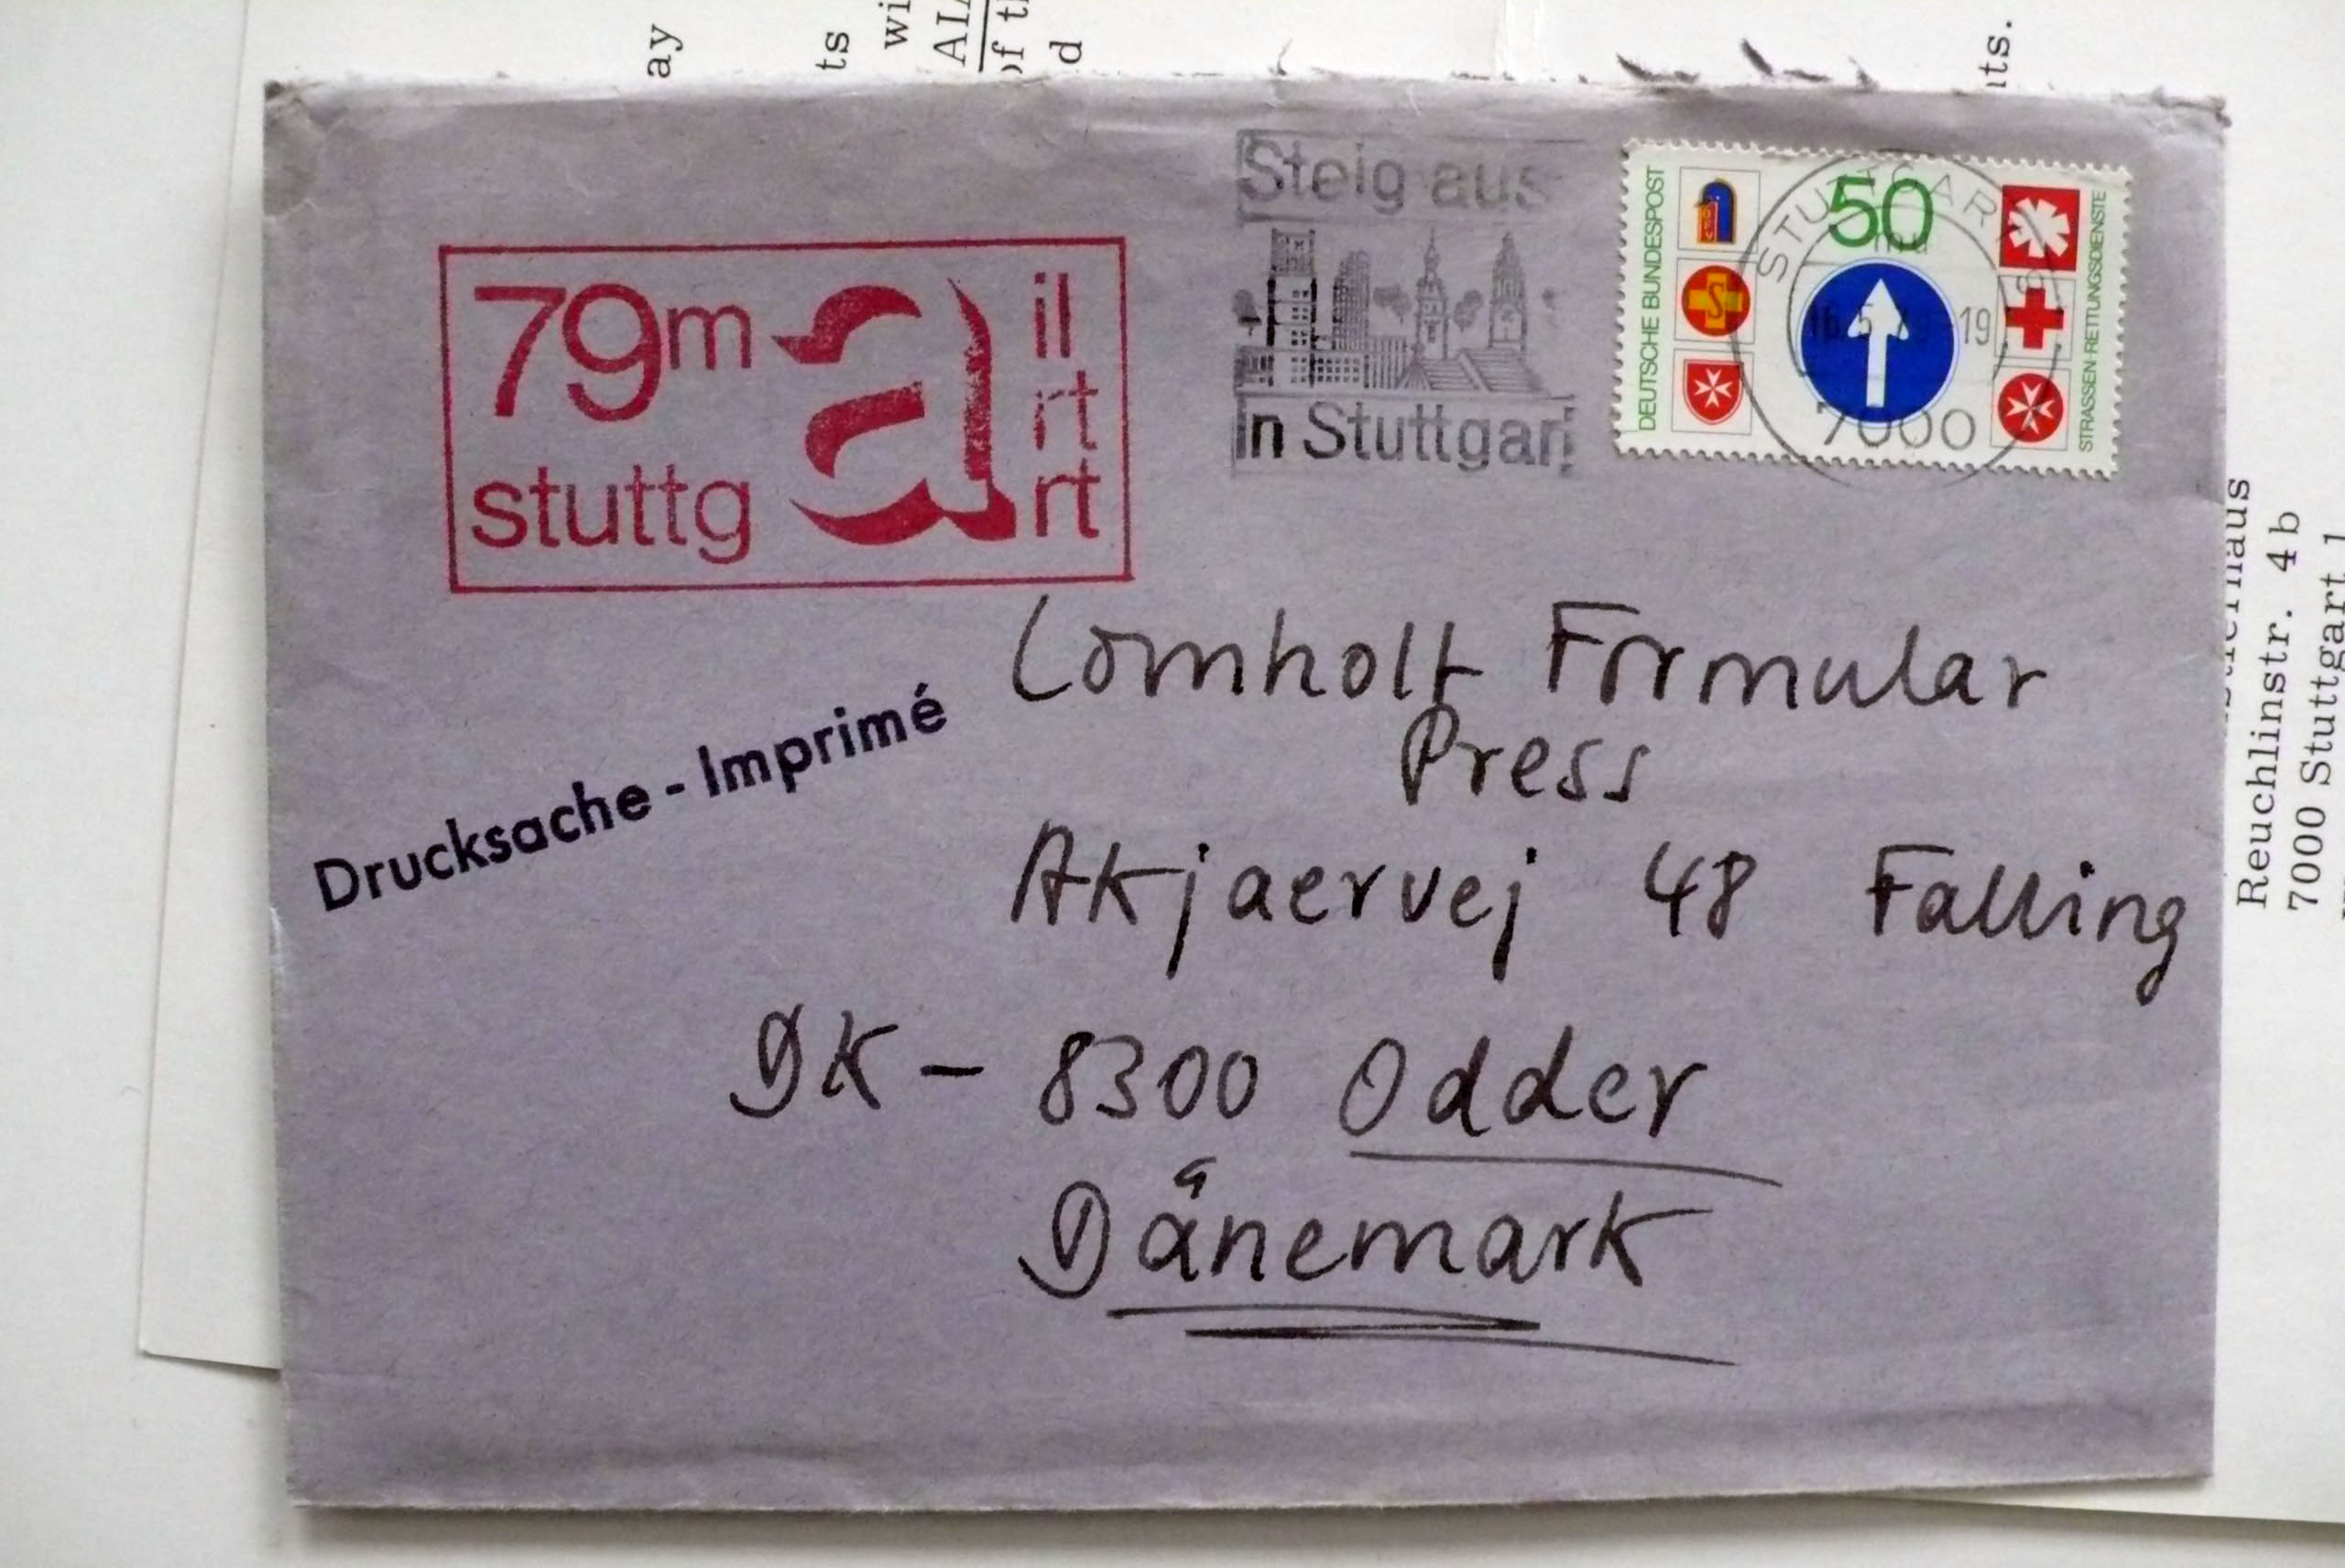 ay
ts
wi
of th
d
nts.
79 m a il
rt
stuttg rt
Steig aus
in Stuttgart
DEUTSCHE BUNDESPOST
50
STRASSEN-RETTUNGSDIENSTE
S
STUTTGART
16.5.79-19
7000
Drucksache - Imprimé
Lomholt Formular
Press
Akjaervej 48 Falling
DK - 8300 Odder
Dänemark
Reuchlinstr. 4b
7000 Stuttgart 1